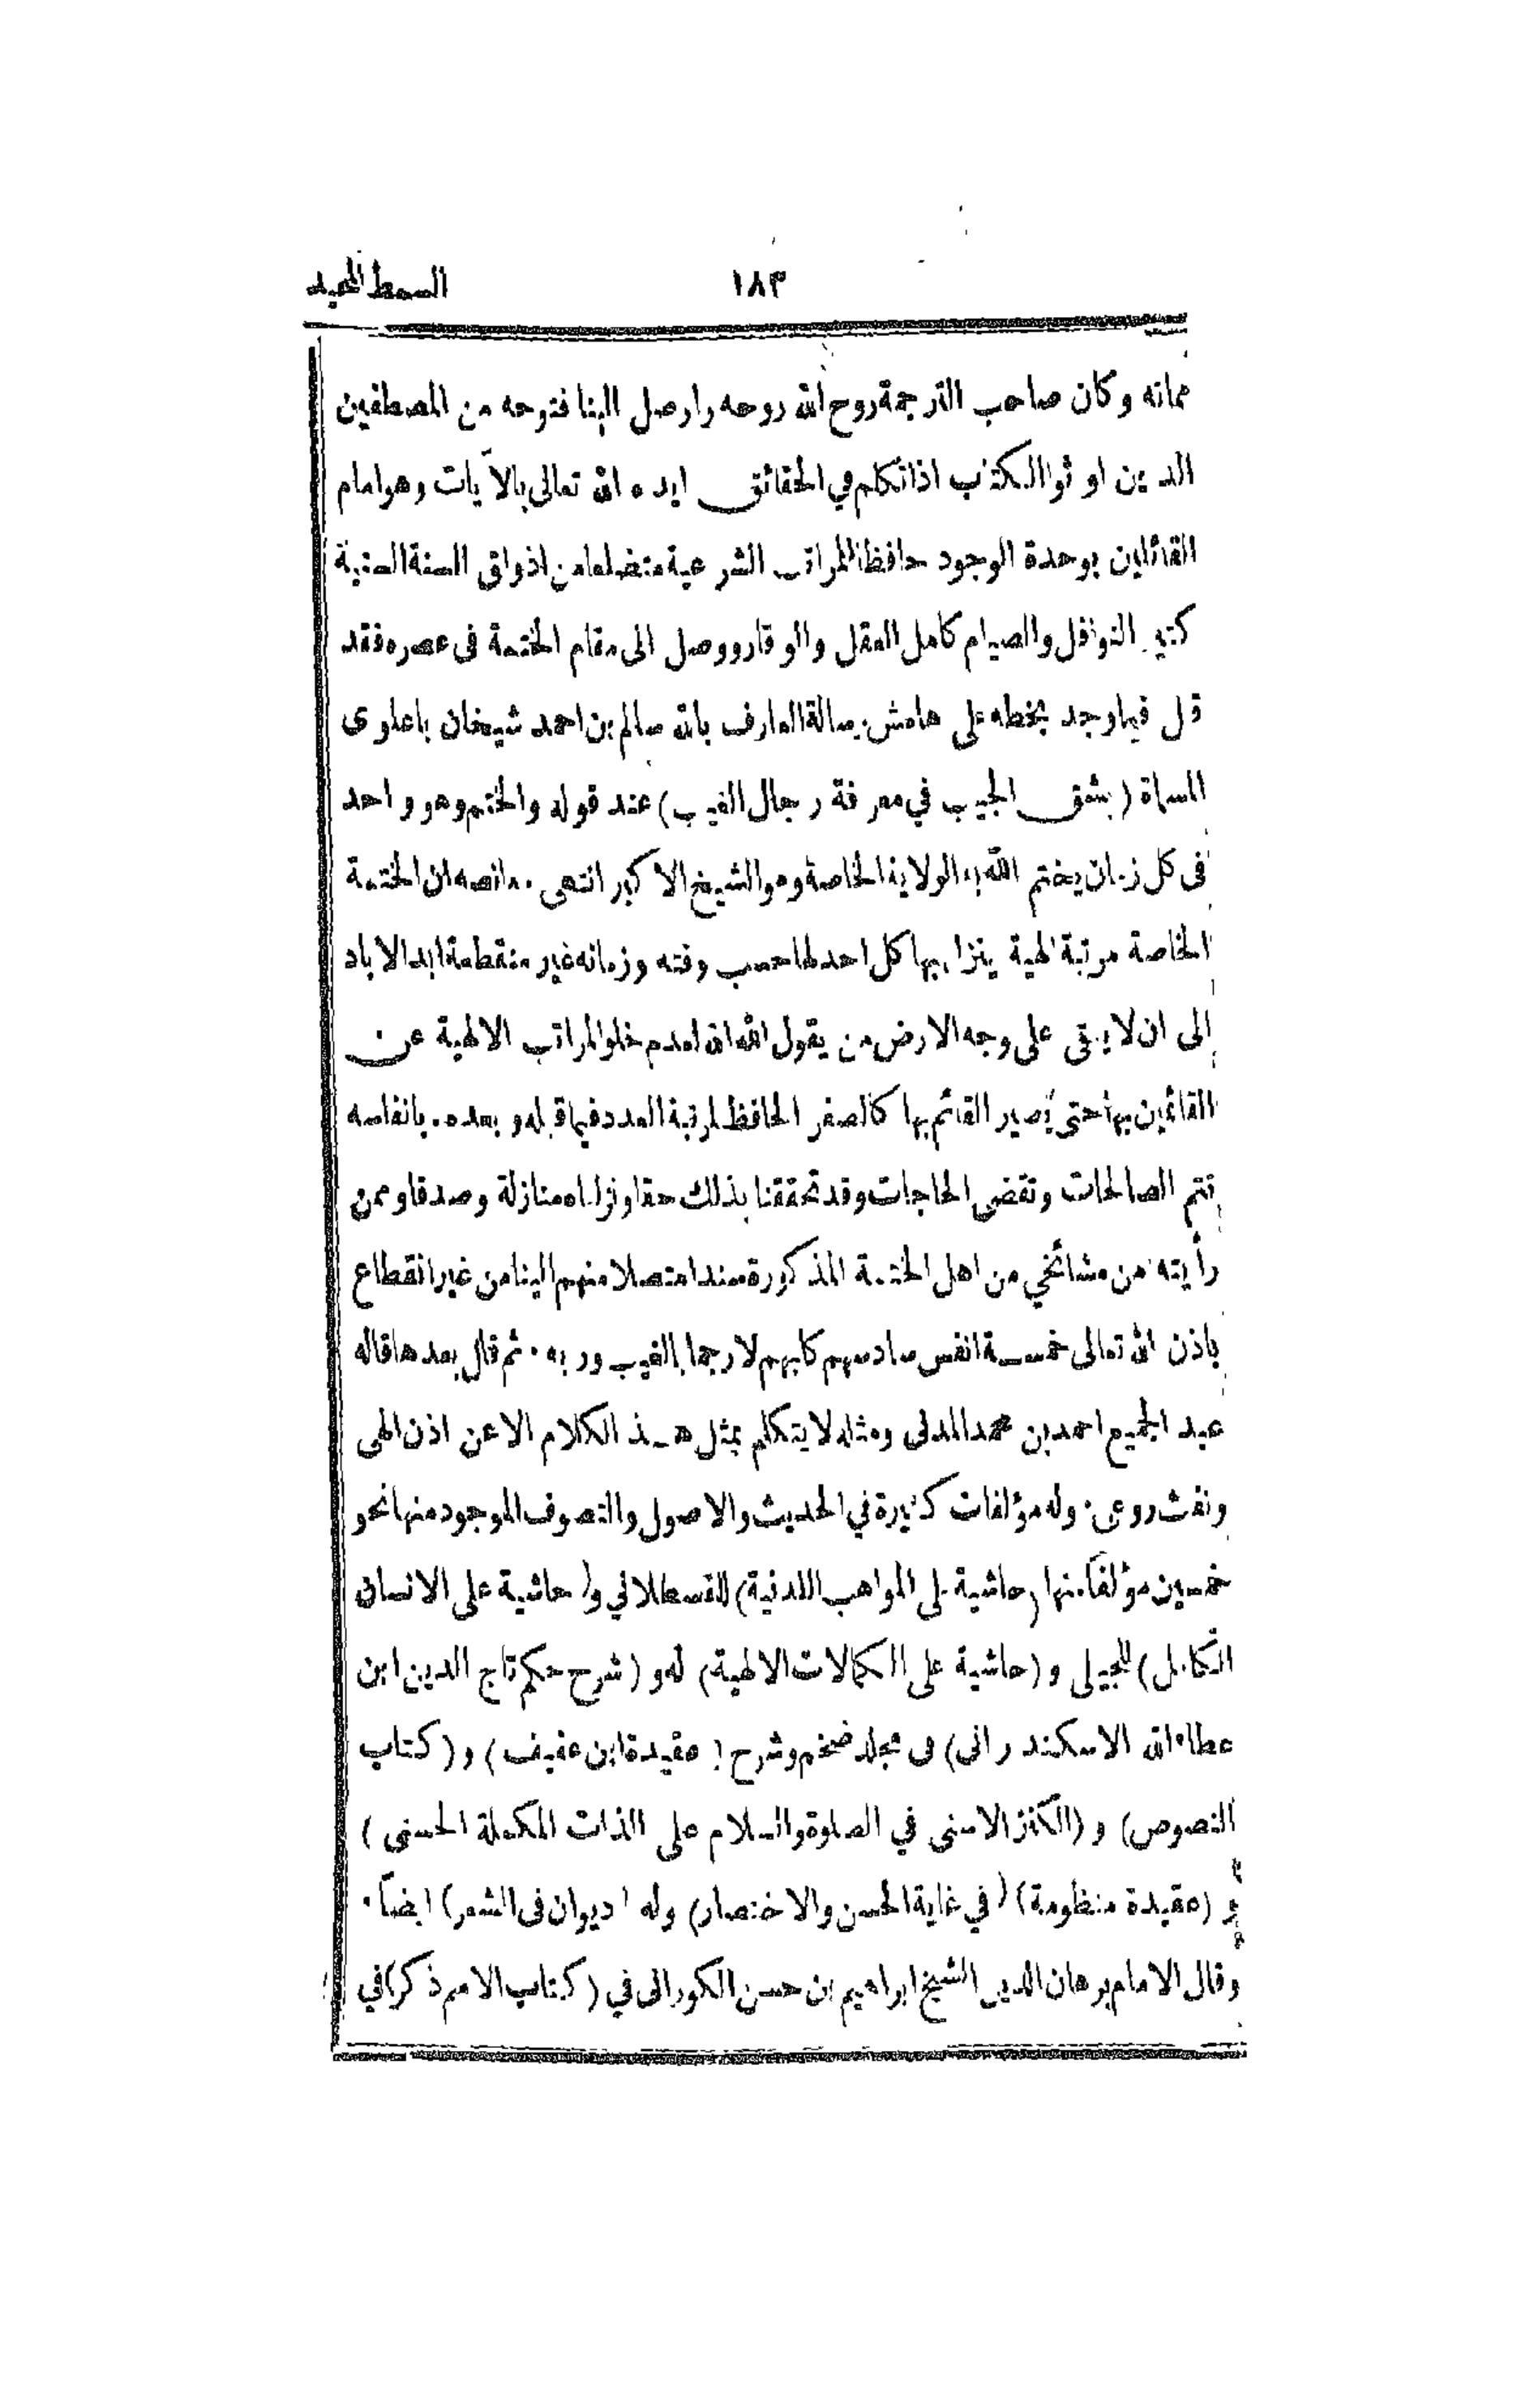 السمط المجيد
١٨٣
مماته وكان صاحب الترجمة روح الله روحه وارصل الينا فتوحه من المصطفين
الذين اوثوا الكتب اذا تكلم في الحقائق ايده الله تعالى بالآيات وهو امام
القائلين بوحدة الوجود حافظا للمراتب الشرعية متضلعا من اذواق السنة السنية
كثير النوافل والصيام كامل العقل والوقار ووصل الى مقام الختمة فى عصره فقد
قال فيما وجد بخطه على هامش رسالة العارف بالله سالم بن احمد شيخان باعلوى
المسماة (بشق الجيب في معرفة رجال الغيب) عند قوله والختم وهو واحد
فى كل زمان يختم الله به الولاية الخاصة وهو الشيخ الاكبر انتهى . مانصه ان الختمة
الخاصة مرتبة الهية ينزل بها كل احد لها حسب وقته وزمانه غير منقطعة ابد الاباد
الى ان لا يبقى على وجه الارض من يقول الله الله لعدم خلو المراتب الالهية عن
القائمين بها حتى يصير القائم بها كالصفر الحافظ لمرتبة العدد فيما قبله وبعده . بانفاسه
تتم الصالحات وتقضى الحاجات وقد تحققنا بذلك حقا ونزلناه منازلة وصدقا وممن
رأيته من مشائخي من اهل الختمة المذكورة سندا متصلا منهم الينا من غير انقطاع
باذن الله تعالى خمسة انفس سادسهم كلبهم لا رجما بالغيب وربه . ثم قال بعدها قاله
عبد الجميع احمد بن محمد المدنى ومثله لا يتكلم بمثل هذا الكلام الا عن اذن الهى
ونفث روعى . وله مؤلفات كثيرة في الحديث والاصول والتصوف الموجود منها نحو
خمسين مؤلفاً منها (حاشية على المواهب اللدنية) للقسطلاني و(حاشية على الانسان
الكامل) للجيلى و (حاشية على الكمالات الالهية) له و (شرح حكم تاج الدين ابن
عطاء الله الاسكندرانى) فى مجلد ضخم وشرح (عقيدة ابن عفيف) و (كتاب
النصوص) و (الكنز الاسنى في الصلوة والسلام على الذات المكملة الحسنى)
و (عقيدة منظومة) (في غاية الحسن والاختصار) وله (ديوان فى الشعر) ايضاً .
وقال الامام برهان الدين الشيخ ابراهيم بن حسن الكورانى في (كتاب الامم ذكرا في